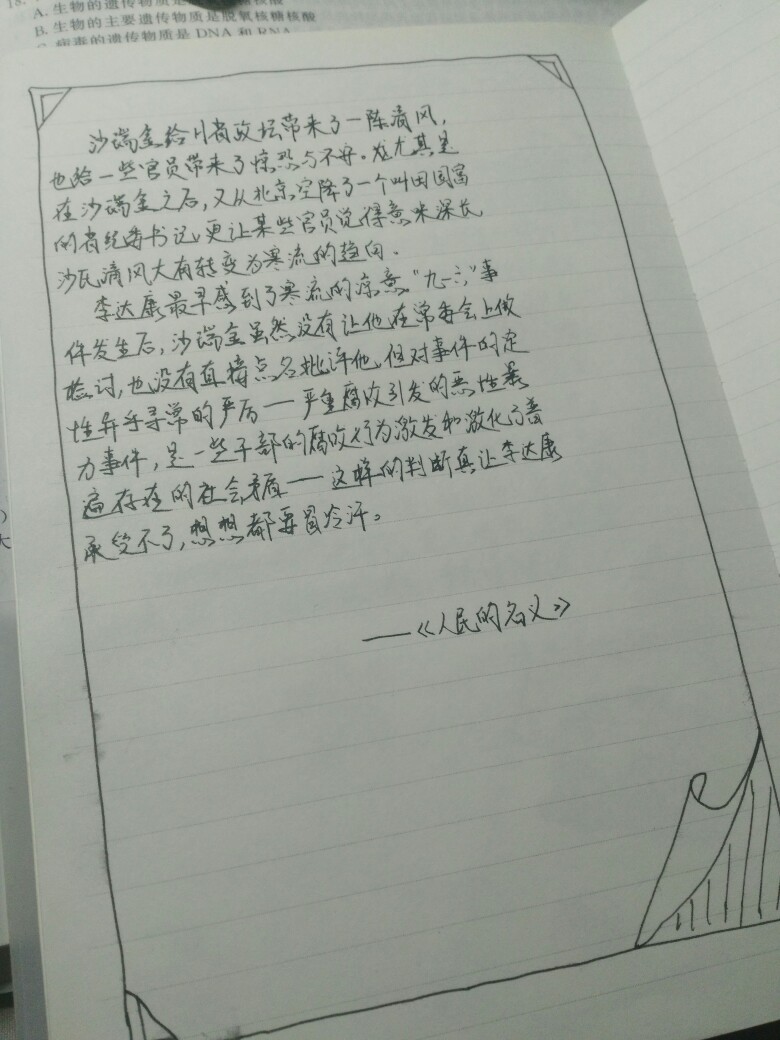 A. 生物的遗传物质是
B. 生物的主要遗传物质是脱氧核糖核酸
C. 病毒的遗传物质是 DNA 和 RNA
沙瑞金给H省政坛带来了一阵清风,
也给一些官员带来了惊恐与不安。尤其是
在沙瑞金之后,又从北京空降了一个叫田国富
的省纪委书记,更让某些官员觉得意味深长
沙氏清风大有转变为寒流的趋向。
李达康最早感到了寒流的凉意“九一六”事
件发生后,沙瑞金虽然没有让他在常委会上做
检讨,也没有直接点名批评他,但对事件的定
性异乎寻常的严厉——严重腐败引发的恶性暴
力事件,是一些干部的腐败行为激发和激化了普
遍存在的社会矛盾——这样的判断真让李达康
承受不了,想想都要冒冷汗。
——《人民的名义》